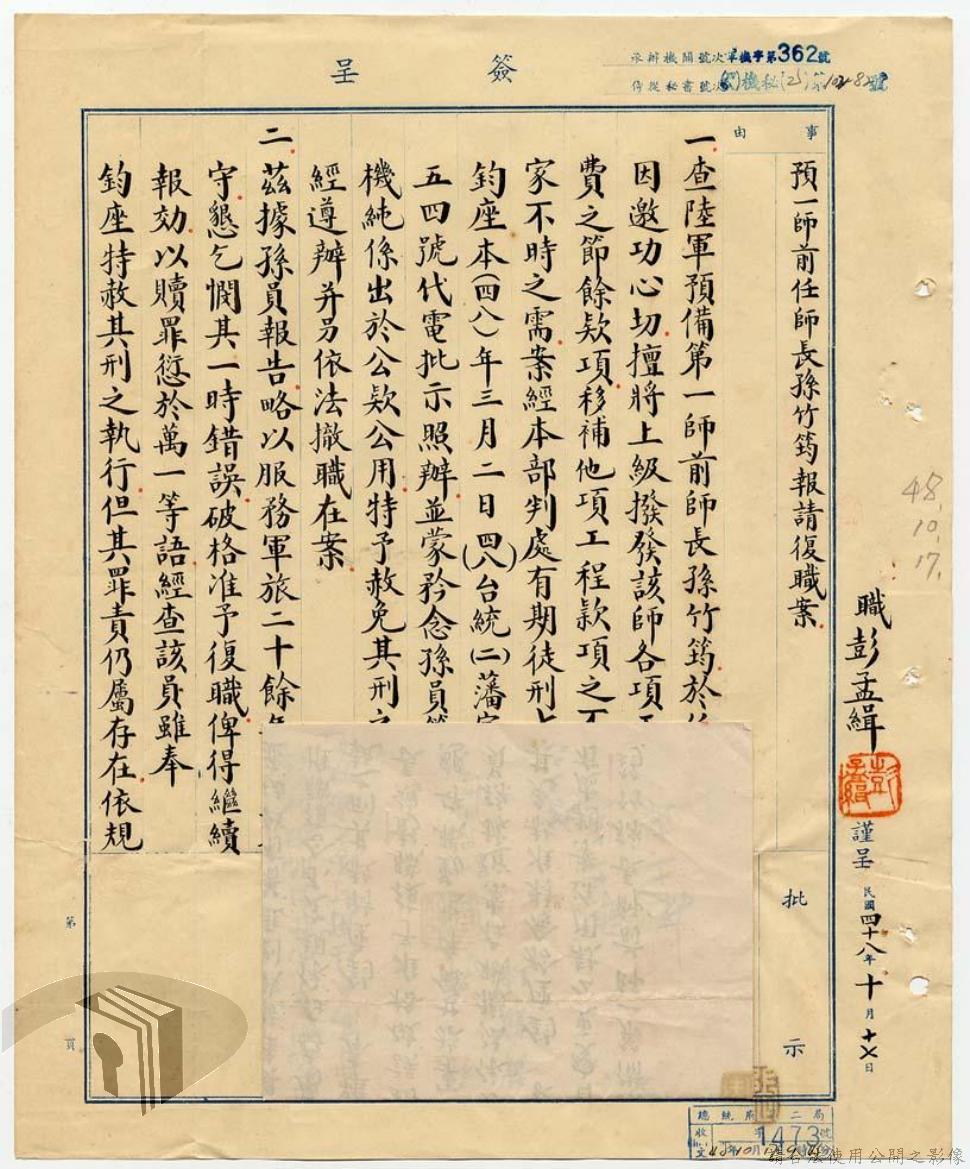 簽呈
承辦機關號次軍機字第362號
侍從秘書號次機秘(乙)第102-82號
事由
預一師前任師長孫竹筠報請復職案
一查陸軍預備第一師前師長孫竹筠於
因邀功心切擅將上級撥發該師各項
費之節餘款項移補他項工程款項之不
家不時之需案經本部判處有期徒刑
鈞座本(四八)年三月二日(四八)台統(二)藩
五四號代電批示照辦並蒙矜念孫員
機純係出於公款公用特予赦免其刑之
經遵辦并另依法撤職在案
二茲據孫員報告略以服務軍旅二十餘年
守懇乞憫其一時錯誤破格准予復職俾得繼續
報効以贖罪愆於萬一等語經查該員雖奉
鈞座特赦其刑之執行但其罪責仍屬存在依規
職彭孟緝
謹呈
民國四十八年十月十七日
48.
10.
17.
批示
第 頁
總統府第二局
收文
1473號
請合法使用公開之影像